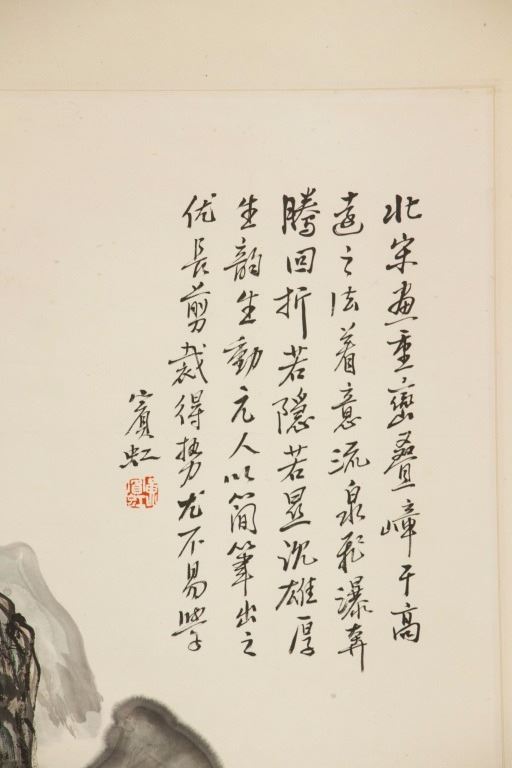 北宋画重峦叠嶂于高
远之法着意流泉飛瀑奔
騰回折若隐若显沉雄厚
生韵生動元人以簡筆出之
优长剪裁得势尤不易學
賓虹